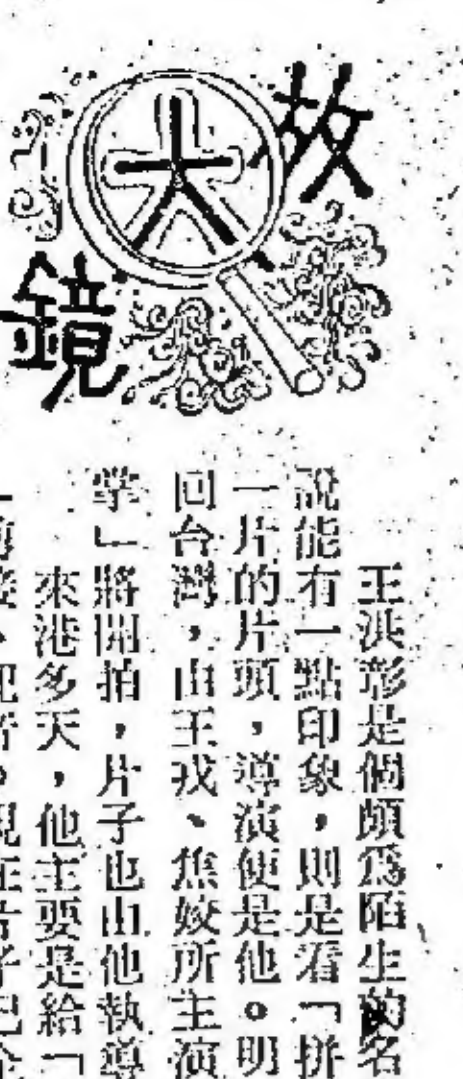 放大鏡
王洪彰是個頗為陌生的名
說能有一點印象，則是看「拼
一片的片頭，導演便是他。明
回台灣，由王戎、焦姣所主演
掌」將開拍，片子也由他執導
來港多天，他主要是給「